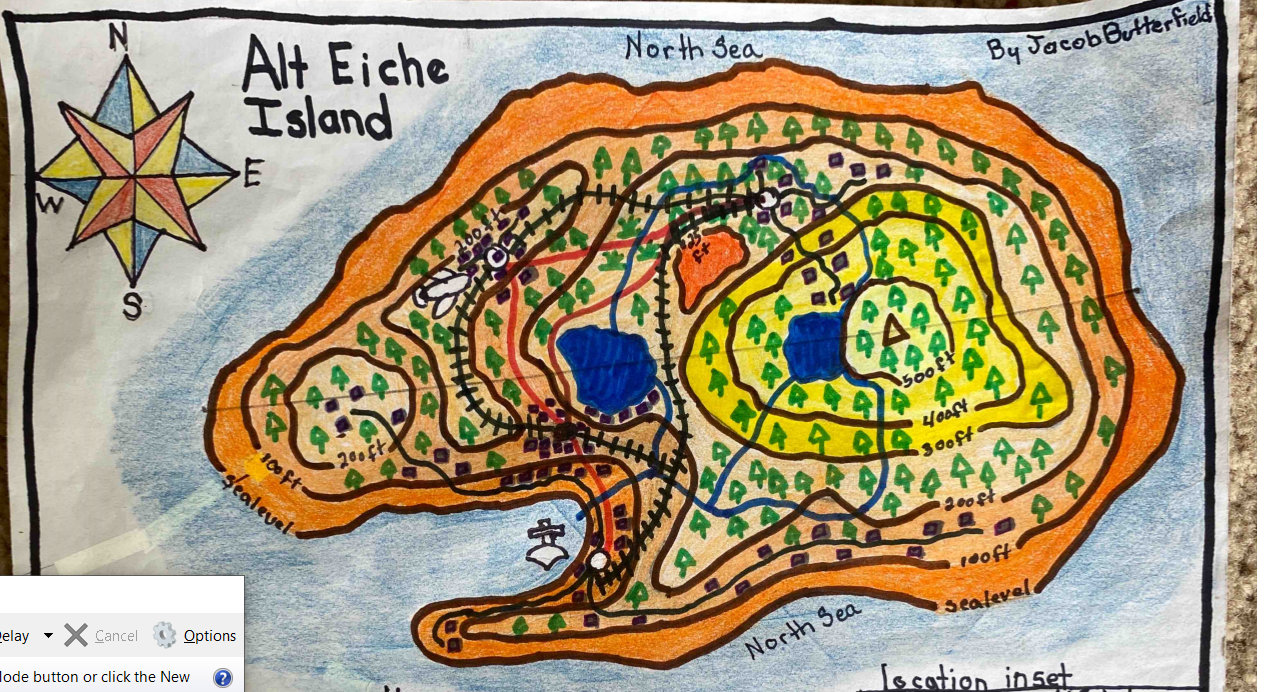 N
Alt Eiche
Island
North Sea
By Jacob Butterfield
E
W
S
200ft
ft
500ft
400ft
300ft
200ft
100ft
sealevel
200ft
100ft
sealevel
North Sea
Location inset
elay
Cancel
Options
Mode button or click the New
?